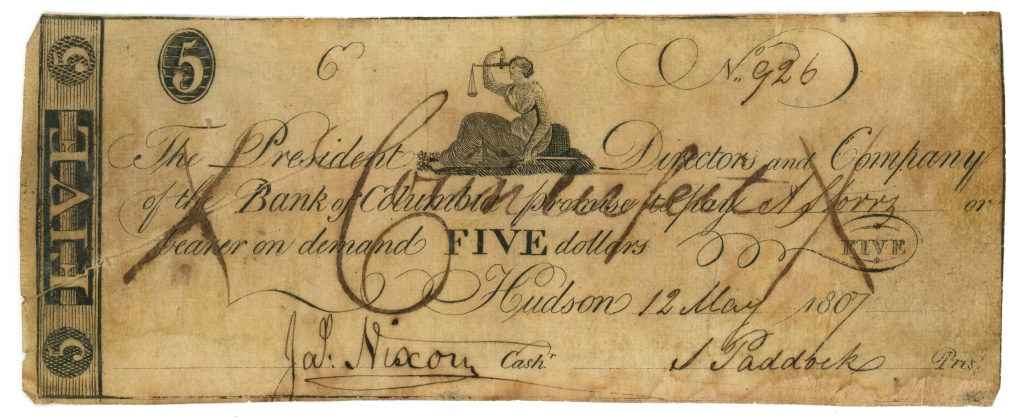 5
5
C
No. 926
The President Directors and Company
of the Bank of Columbia promise to pay A Storrs or
bearer on demand FIVE dollars
FIVE
Hudson 12 May 1807
Jas. Nixon Cashr. S Paddock Prest.
FIVE
5